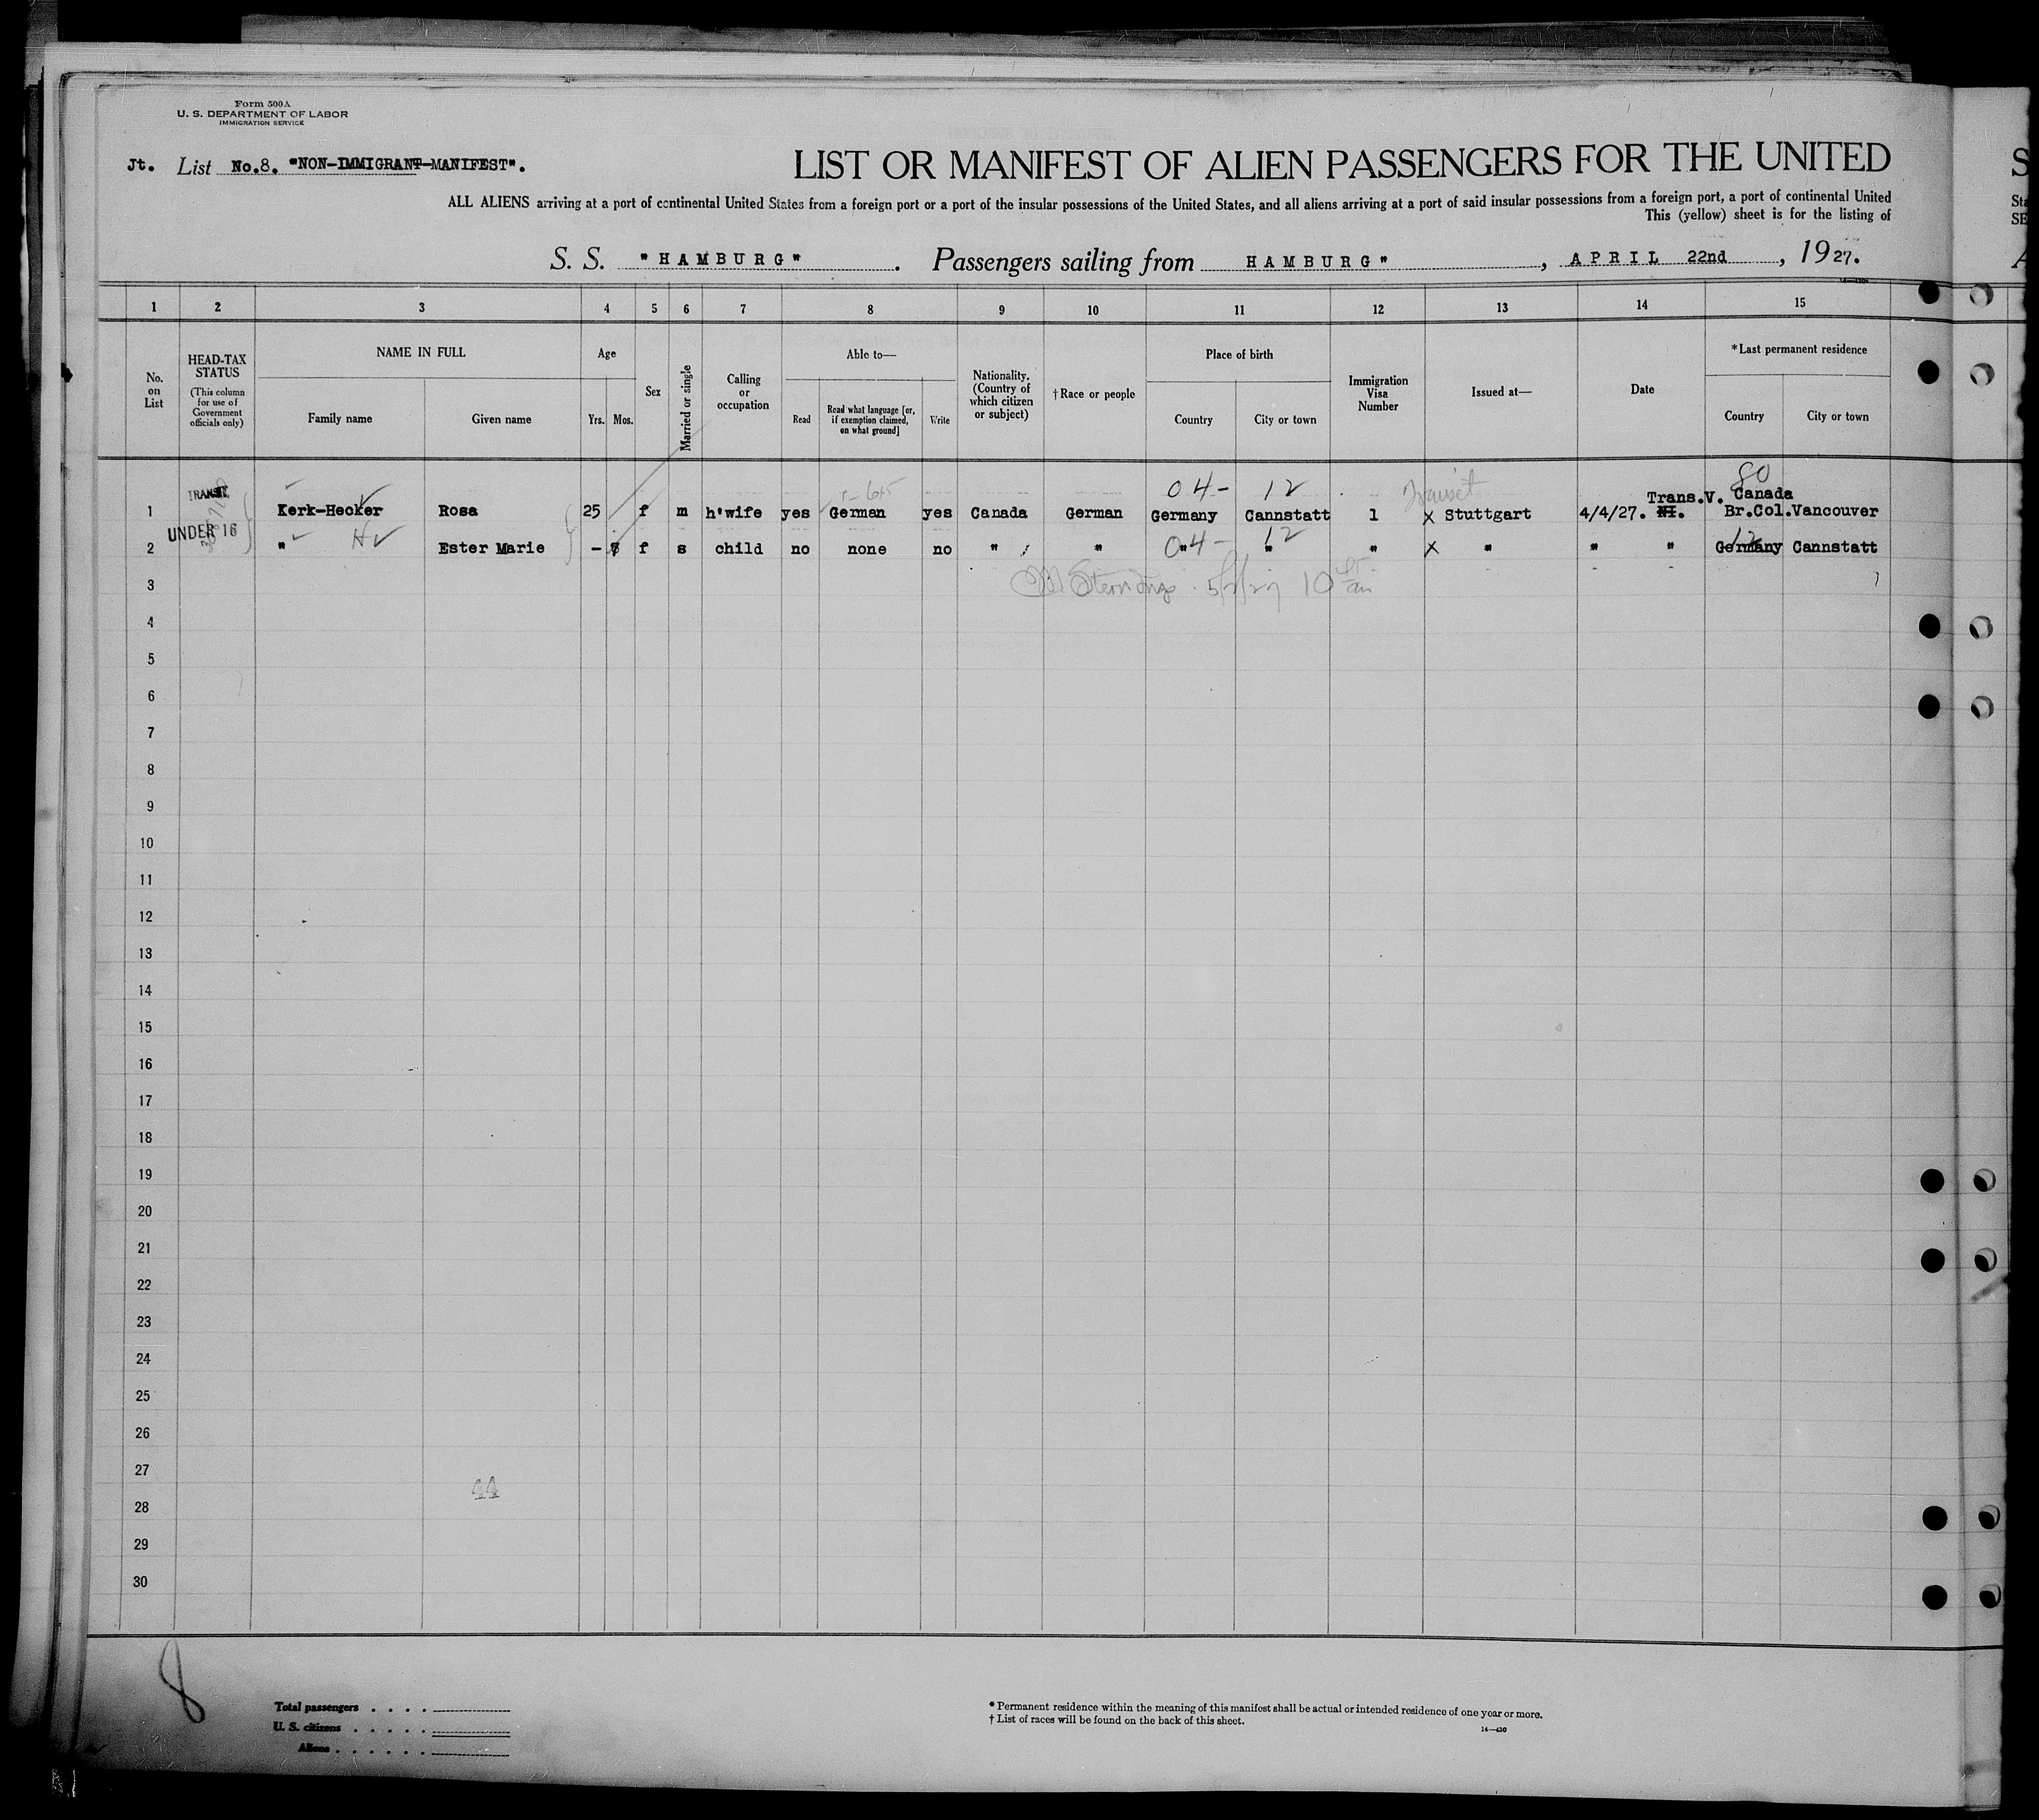 Form 500A
U. S. DEPARTMENT OF LABOR
IMMIGRATION SERVICE
Jt. List No.8. "NON-IMMIGRANT-MANIFEST".
LIST OR MANIFEST OF ALIEN PASSENGERS FOR THE UNITED
S
ALL ALIENS arriving at a port of continental United States from a foreign port or a port of the insular possessions of the United States, and all aliens arriving at a port of said insular possessions from a foreign port, a port of continental United
Sta
This (yellow) sheet is for the listing of
SE
S. S. "HAMBURG". Passengers sailing from HAMBURG", APRIL 22nd, 1927.
A
1 2 3 4 5 6 7 8 9 10 11 12 13 14 15
No. on List
HEAD-TAX STATUS
(This column for use of Government officials only)
NAME IN FULL
Family name
Given name
Age
Yrs. Mos.
Sex
Married or single
Calling or occupation
Able to—
Read
Read what language [or, if exemption claimed, on what ground]
Write
Nationality. (Country of which citizen or subject)
†Race or people
Place of birth
Country
City or town
Immigration Visa Number
Issued at—
Date
*Last permanent residence
Country
City or town
04- 12 Transit 80
TRANSIT Trans.V. Canada
1 Kerk-Hecker Rosa 25 f m h'wife yes German yes Canada German Germany Cannstatt 1 X Stuttgart 4/4/27. NI. Br.Col.Vancouver
UNDER 16 04- 12 12
2 " H Ester Marie - 7 f s child no none no " " " " " X " " " Germany Cannstatt
3 5/2/27 10 am
4
5
6
7
8
9
10
11
12
13
14
15
16
17
18
19
20
21
22
23
24
25
26
27
28
29
30
8
Total passengers . . . .
U. S. citizens . . . . .
Aliens . . . . . .
* Permanent residence within the meaning of this manifest shall be actual or intended residence of one year or more.
† List of races will be found on the back of this sheet.
14—430